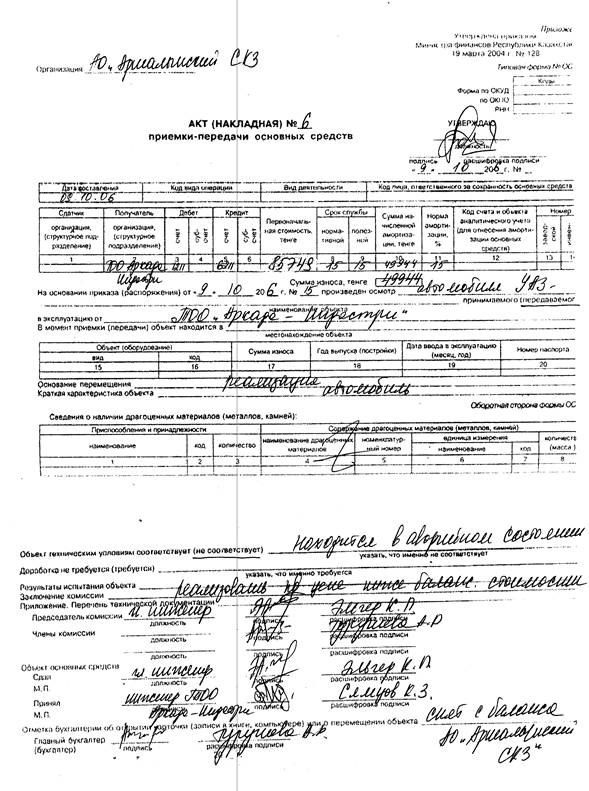 Приложе
Утверждена приказом
Министра финансов Республики Казахстан
19 марта 2004 г. № 128
Организация АО „Аркалыкский СКЗ
Типовая форма № ОС
Коды
Форма по ОКУД
по ОКПО
РНН
АКТ (НАКЛАДНАЯ) № 6
приемки-передачи основных средств
УТВЕРЖДАЮ
должность
подпись расшифровка подписи
"9" 10 2006 г. №
Дата составления Код вида операции Вид деятельности Код лица, ответственного за сохранность основных средств
09.10.06
Сдатчик Получатель Дебет Кредит Первоначальная стоимость, тенге Срок службы Сумма начисленной амортизации, тенге Норма амортизации, % Код счета и объекта аналитического учета (для отнесения амортизации основных средств) Номер
организация, (структурное подразделение) организация, (структурное подразделение) счет субсчет счет субсчет нормативной полезной заводской инвен-
1 3 4 6 12 13 1
ТОО Аркада 85749 15 15 49944 15
Индастри
Сумма износа, тенге 49944
На основании приказа (распоряжения) от "9" 10 2006 г., № 15 произведен осмотр автомобиль УАЗ-
наименование объекта принимаемого (передаваемого
в эксплуатацию от ТОО „Аркада - Индастри"
В момент приемки (передачи) объект находится в
местонахождение объекта
Объект (оборудование) Сумма износа Год выпуска (постройки) Дата ввода в эксплуатацию (месяц, год) Номер паспорта
вид код
15 16 17 18 19 20
Основание перемещения реализация
Краткая характеристика объекта автомобиль
Оборотная сторона формы ОС
Сведения о наличии драгоценных материалов (металлов, камней):
Приспособления и принадлежности Содержание драгоценных материалов (металлов, камней)
наименование код количество наименование драгоценных материалов номенклатурный номер единица измерения количество (масса)
наименование код
1 2 3 4 5 6 7 8
Объект техническим условиям соответствует (не соответствует) находится в аварийном состоянии
указать, что именно не соответствует
Доработка не требуется (требуется)
указать, что именно требуется
Результаты испытания объекта
Заключение комиссии реализовать по цене ниже баланс. стоимости
Приложение. Перечень технической документации
Председатель комиссии гл. инженер Эльгер К. П.
должность подпись расшифровка подписи
Члены комиссии
должность подпись расшифровка подписи
должность подпись расшифровка подписи
Объект основных средств
Сдал гл инженер Эльгер К. П.
М.П. должность подпись расшифровка подписи
Принял инженер ТОО К. З.
М.П. Аркада-Индастри
Отметка бухгалтерии об открытии карточки (записи в книге, компьютере) или о перемещении объекта снят с баланса
АО „Аркалыкский СКЗ"
Главный бухгалтер (бухгалтер)
подпись расшифровка подписи